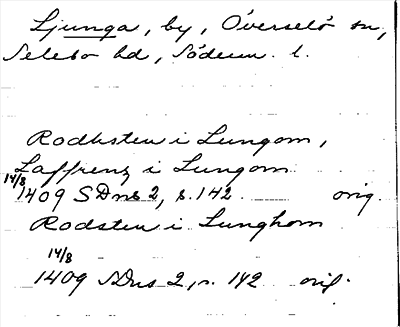 Ljunga, by, Överselö sn,
Selebo hd, Söderm. l.
Rodhsten i Lungom,
Laffrenz i Lungom
14/8
1409 SDns 2, s. 142 orig.
Rodsten i Lunghom
14/8
1409 SDns 2, s. 142 orig.